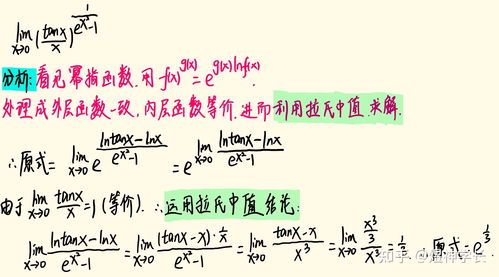 lim x→0 (tanx/x)^(1/(e^(x²)-1))
分析:看见幂指函数,用 f(x)^g(x) = e^(g(x)lnf(x)).
处理成外层函数一致,内层函数等价,进而利用拉氏中值求解.
∴原式= lim x→0 e^((lntanx-lnx)/(e^(x²)-1)) = e^(lim x→0 (lntanx-lnx)/(e^(x²)-1))
由于 lim x→0 tanx/x =1 (等价). ∴运用拉氏中值结论:
lim x→0 (lntanx-lnx)/(e^(x²)-1) = lim x→0 (tanx-x)·(1/x)/(e^(x²)-1) = lim x→0 (tanx-x)/x³ = lim x→0 (x³/3)/x³ = 1/3. 原式=e^(1/3)
知乎